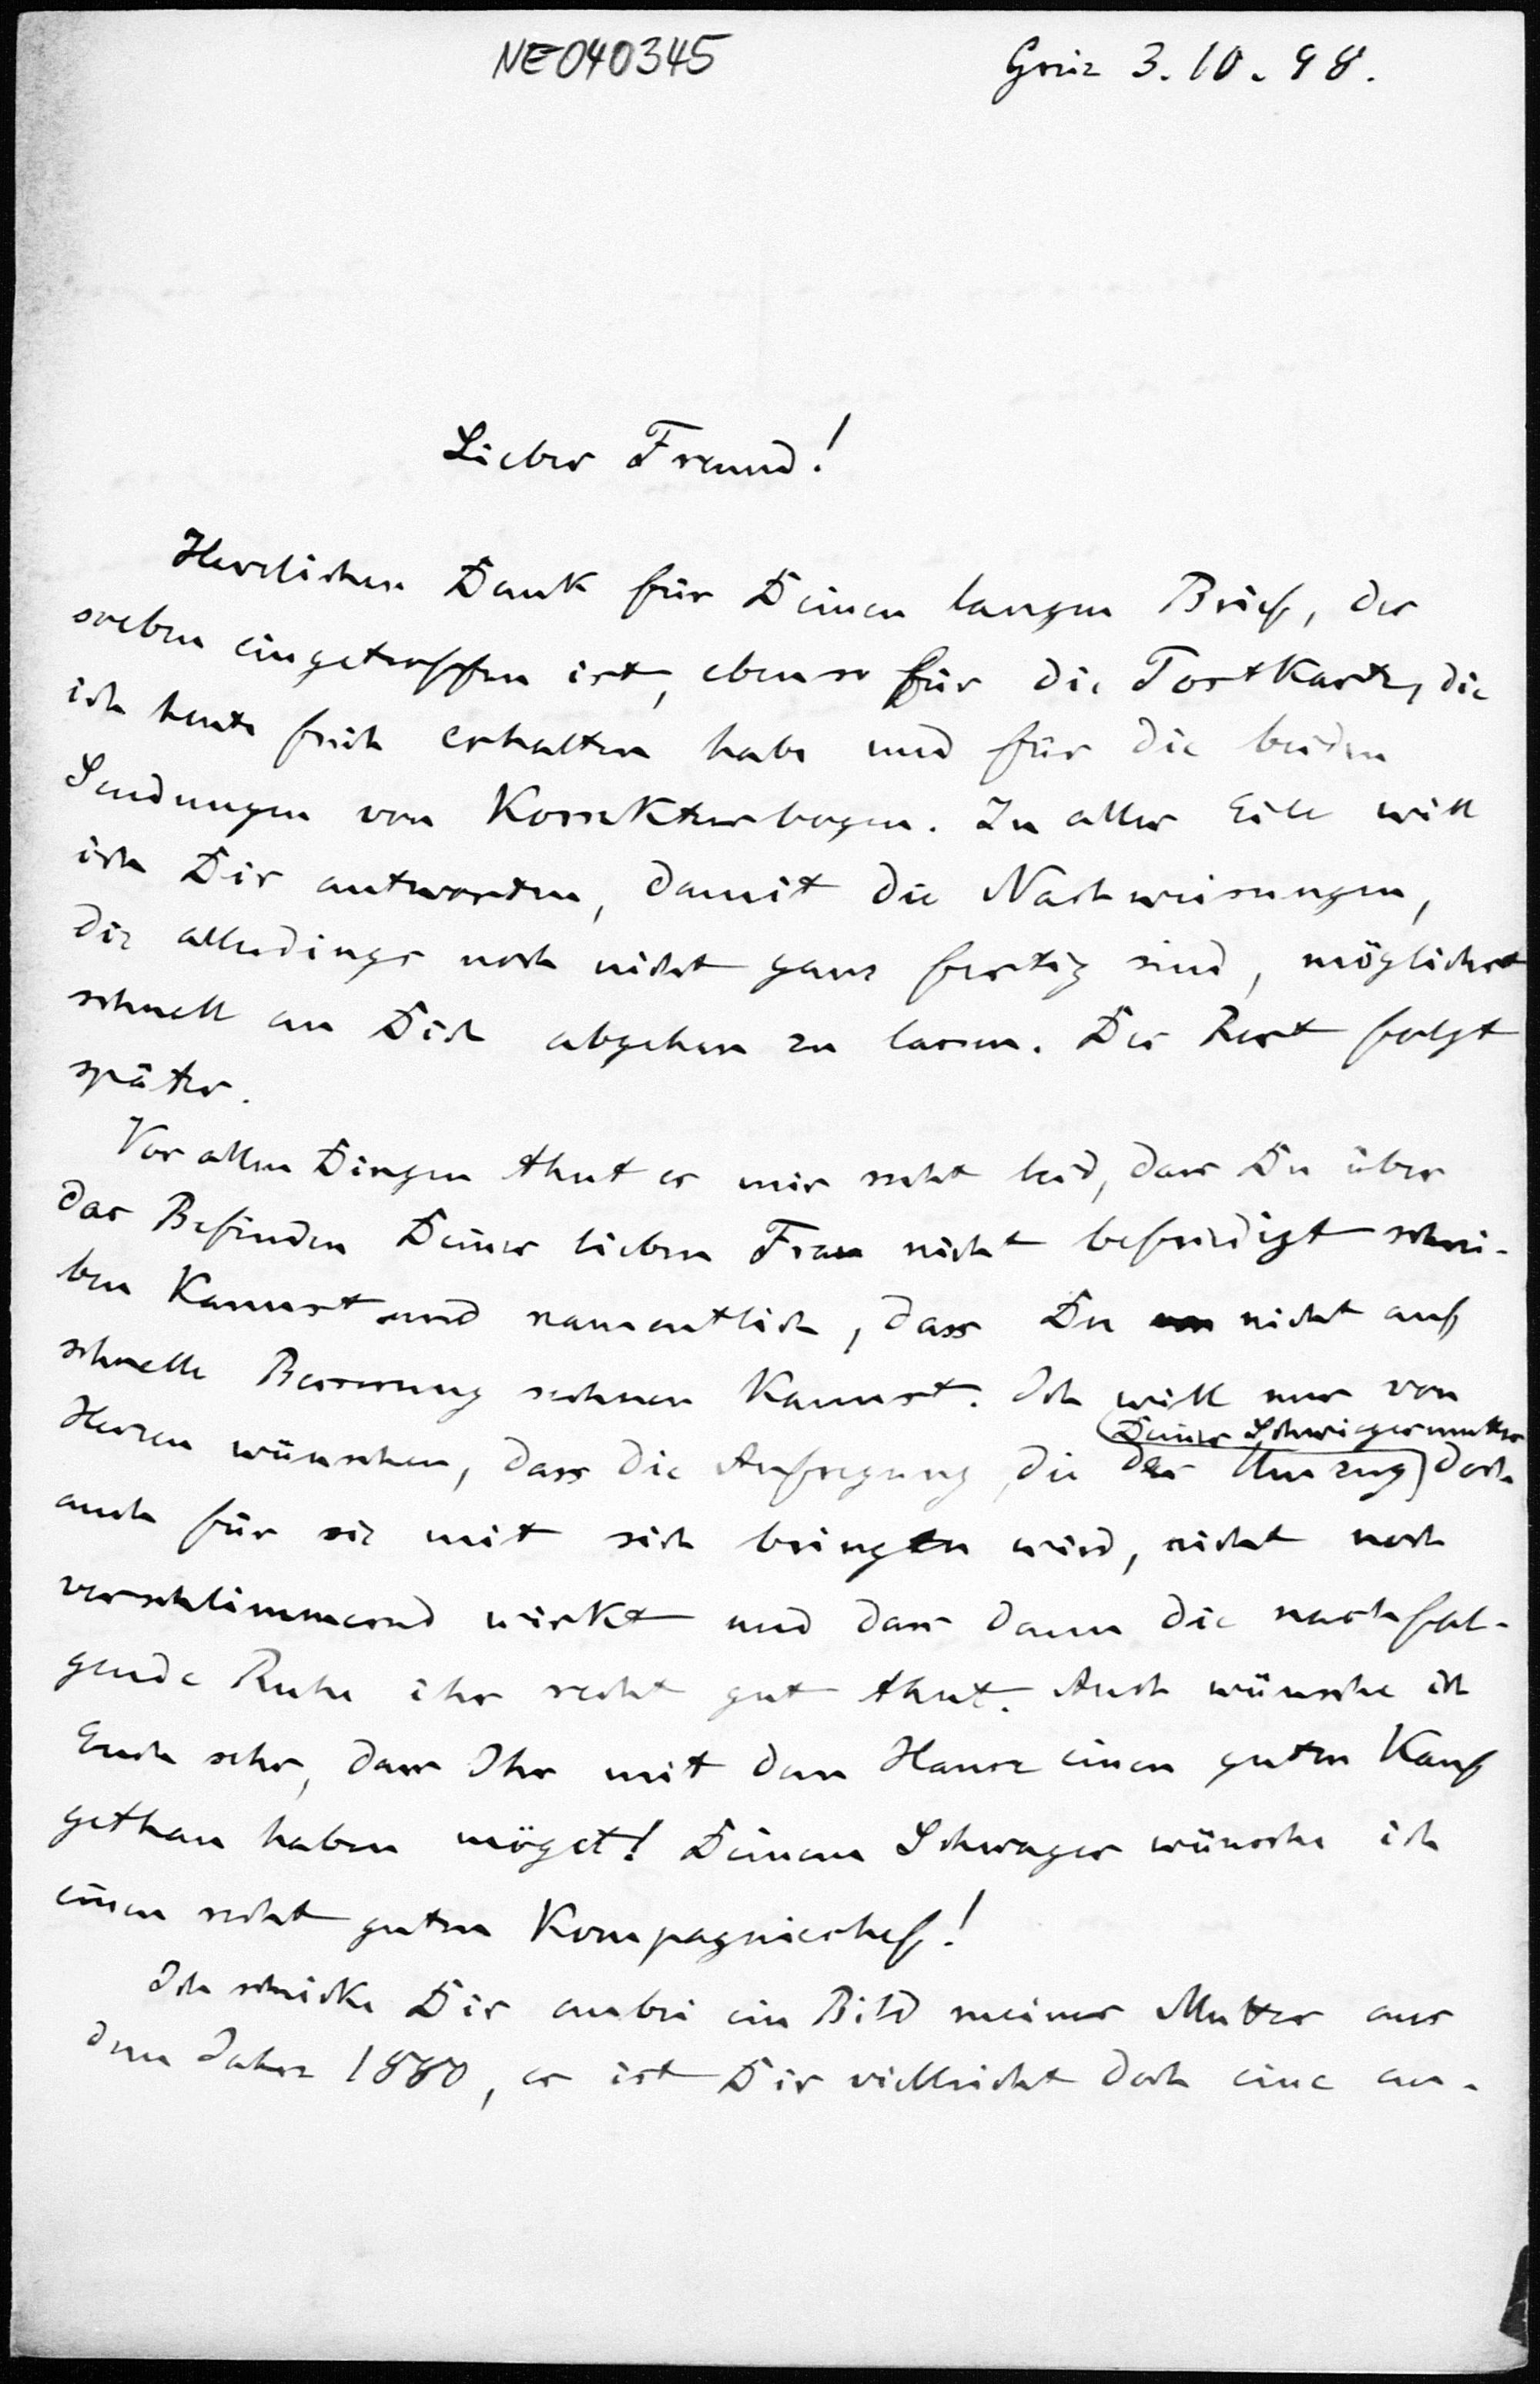 NE040345
Greiz 3.10.98.
Lieber Freund!
Herzlichen Dank für Deinen langen Brief, der
soeben eingetroffen ist, ebenso für die Postkarte, die
ich heute früh erhalten habe und für die beiden
Sendungen von Korrekturbogen. In aller Eile will
ich Dir antworten, damit die Nachweisungen,
die allerdings noch nicht ganz fertig sind, möglichst
schnell an Dich abgehen zu lassen. Der Rest folgt
später.
Vor allen Dingen thut es mir recht leid, dass Du über
das Befinden Deiner lieben Frau nicht befriedigt schrei-
ben kannst und namentlich, dass Du nicht auf
schnelle Besserung rechnen kannst. Ich will nur von
Deiner Schwiegermutter
Herzen wünschen, dass die Aufregung, die der Umzug doch
auch für sie mit sich bringen wird, nicht noch
verschlimmernd wirkt und dass dann die nachfol-
gende Ruhe ihr recht gut thut. Auch wünsche ich
Euch sehr, dass Ihr mit dem Hause einen guten Kauf
gethan haben möget! Deinem Schwager wünsche ich
einen recht guten Kompagniechef!
Ich schicke Dir anbei ein Bild meiner Mutter aus
dem Jahre 1880, es ist Dir vielleicht doch eine an-